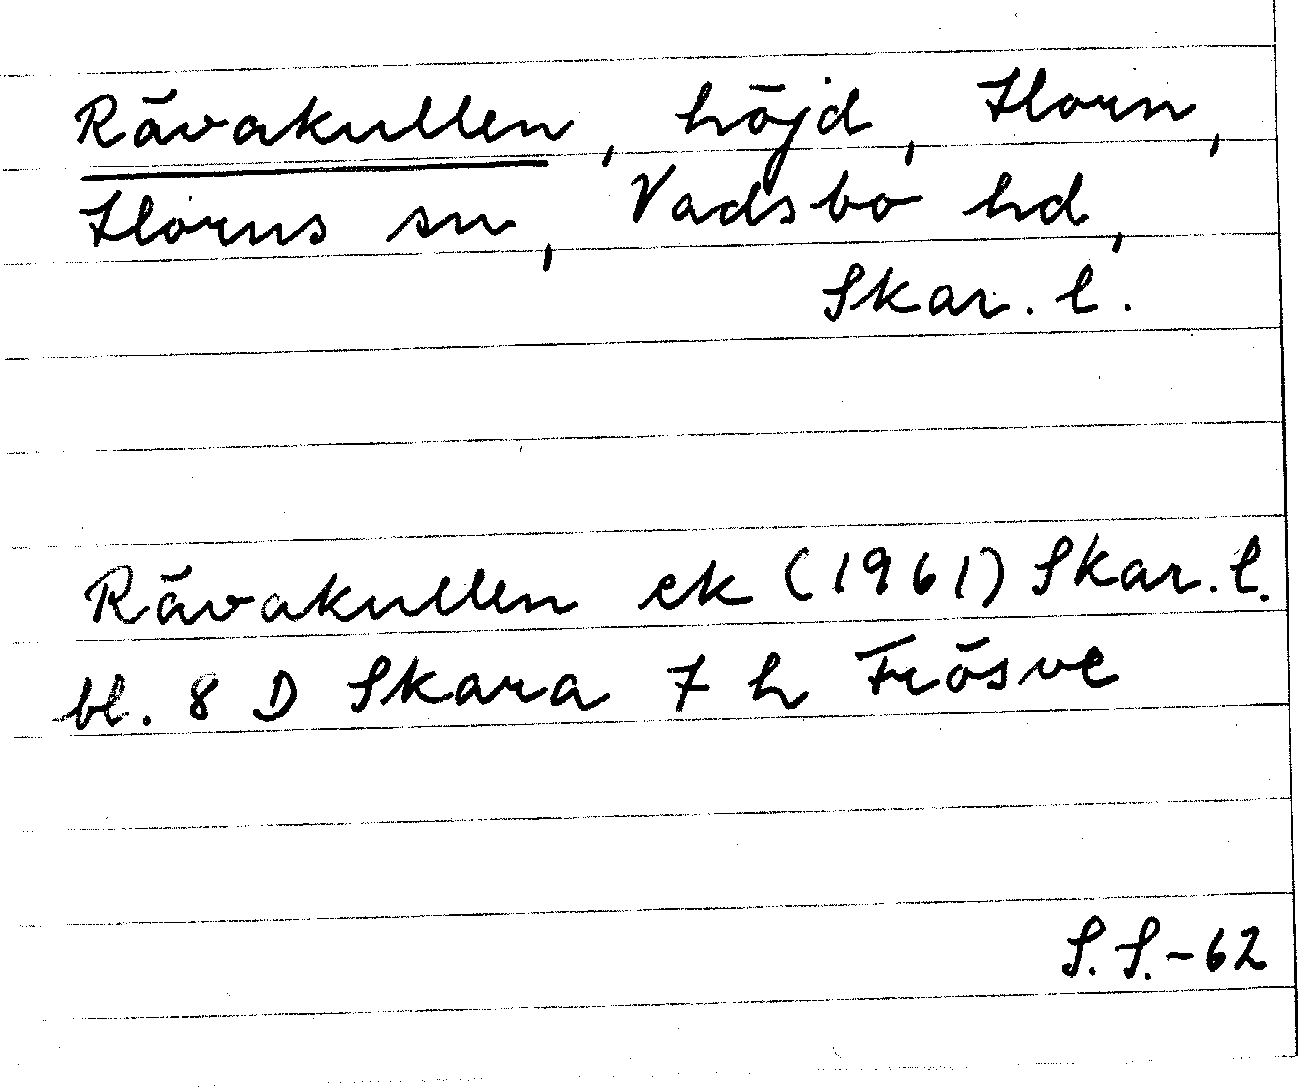 Rävakullen, höjd, Horn,
Horns sn, Vadsbo hd,
Skar. l.
Rävakullen ek (1961) Skar. l.
bl. 8 D Skara 7 h Frösve
S. S. - 62